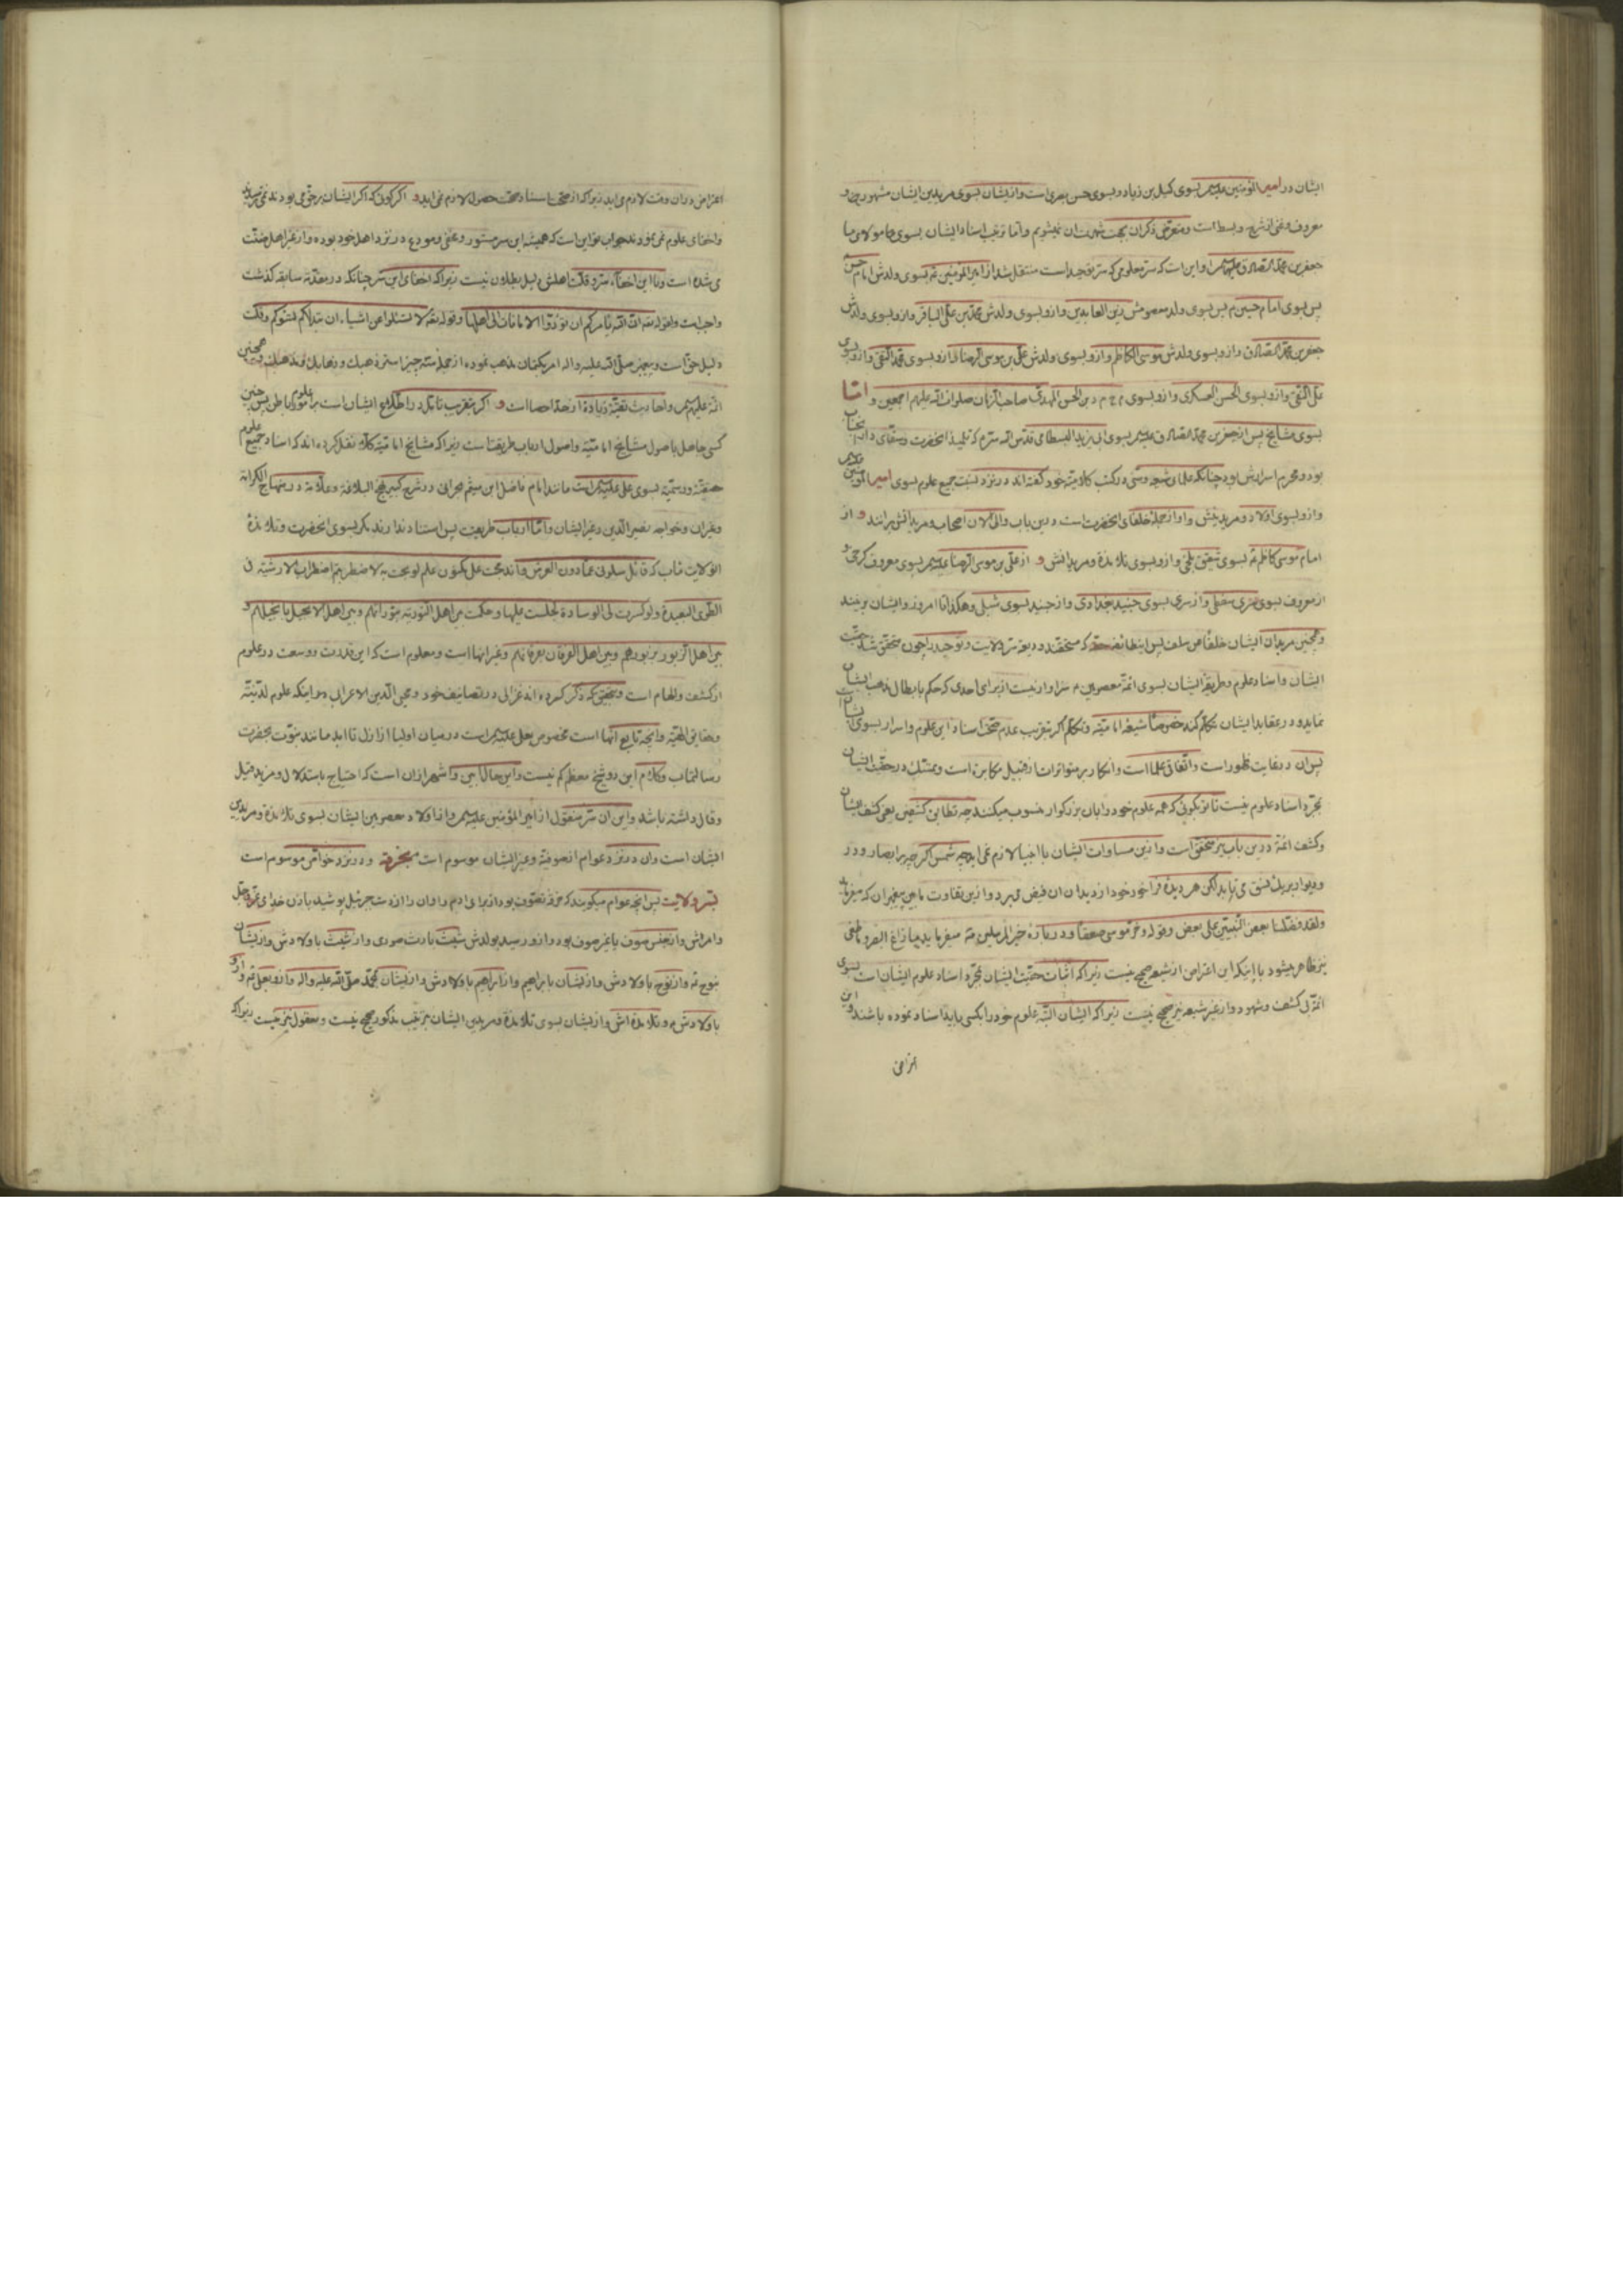 ایشان در امیر المؤمنین علیه السلام بسوی کمیل بن زیاد و بسوی حسن بصری است و از ایشان بسوی مریدین ایشان مشهور چون و
معروف و غنی از شرح و بسط است و متعرض ذکر آن بجهت شهرت آن نمیشویم و اما ترتیب اسناد ایشان بسوی ما مولای ما
جعفر بن محمد الصادق علیهما السلام و این است که سر معلومی که سر توحید است منتقل شد از امیر المؤمنین بسوی ولدش امام حسن
پس بسوی امام حسین م پس بسوی ولد معصومش زین العابدین و ازو بسوی ولدش محمد بن علی الباقر و ازو بسوی ولدش
جعفر بن محمد الصادق و ازو بسوی ولدش موسی الکاظم و ازو بسوی ولدش علی بن موسی الرضا و ازو بسوی محمد التقی و ازو بسوی
علی النقی و ازو بسوی الحسن العسکری و ازو بسوی م ح م د بن الحسن المهدی صاحب الزمان صلوات الله علیهم اجمعین و اما
بسوی مشایخ پس از جعفر بن محمد الصادق علیه السلام بسوی ابی یزید البسطامی قدس الله سره که تلمیذ آنحضرت و سقای
بود و محرم اسرارش بود چنانکه علمای شیعه و سنی در کتب کلامیه خود گفته اند در نزد نسبت جمیع علوم بسوی امیر المؤمنین
و ازو بسوی اولاد و مریدینش و او از جمله خلفای آنحضرت است درین باب و الی الآن اصحاب و مریدانش برآنند و از
امام موسی کاظم بسوی شقیق بلخی و ازو بسوی تلامذه و مریدانش و از علی بن موسی الرضا علیه السلام بسوی معروف کرخی و
از معروف بسوی سری سقطی و از سری بسوی جنید بغدادی و از جنید بسوی شبلی و هکذا تا امروز و ایشان برینند
و همچنین مریدان ایشان خلفا عن سلف پس اینطایفه حقه که مستحقند ودیعه سر ولایت و توحید را چون متحقق شد حقیت
ایشان و اسناد علوم و طریقه ایشان بسوی ائمه معصومین م سزاوار نیست از برای احدی که حکم بابطال مذهب ایشان
نماید و در عقاید ایشان تکلم کند خصوصا شیعه امامیه و تکلم اگر بتقریب عدم صحت اسناد این علوم و اسرار بسوی ایشان
پس آن در غایت ظهور است و اتفاق علما است و انکار بر متواترات از قبیل مکابره است و تمسک در حقیت ایشان
بمجرد اسناد علوم نیست تا تو بگوئی که همه علوم خود را بآن بزرگوار منسوب میکنند چه تطابق کشفین یعنی کشف ایشان
و کشف ائمه درین باب نیز متحقق است و ازین مساوات ایشان با انبیا لازم نمی آید چه شمس اگر چه بر ابصار و در
و دیوار بریک نسق می تابد لکن هر دیده فراخور خود از دیدن آن فیض میبرد و ازین تفاوت مابین پیغمبران که میفرماید
ولقد فضلنا بعض النبیین علی بعض و قوله و خر موسی صعقا و درباره خیر المرسلین میفرماید ما زاغ البصر و ما طغی
نیز ظاهر میشود با اینکه این اعتراض از شیعه صحیح نیست زیرا که اثبات حقیت ایشان بمجرد اسناد علوم ایشان است بسوی
ائمه بی کشف و شهود و از غیر شیعه نیز صحیح نیست زیرا که ایشان البته علوم خود را بکسی باید اسناد نموده باشند و این
اعتراض
اعتراض در آن وقت لازم می آید زیرا که از صحت اسناد صحت حصول لازم نمی آید و اگر گوئی که اگر ایشان بر حق می بودند نمی ترسیدند
و اخفای علوم نمی نمودند جواب تو این است که همیشه این سر مستور و مخفی و مودع در نزد اهل خود بوده و از غیر اهل
می شده است و اما این اخفاء سر و قلت اهلش دلیل بطلان نیست زیرا که اخفای این سر چنانکه در مقدمه سابقه گذشت
واجب است و لقوله تعه ان الله یأمرکم ان تؤدوا الامانات الی اهلها و قوله تعه لا تسئلوا عن اشیاء ان تبد لکم تسؤکم و قلت
دلیل حق است و پیغمبر صلی الله علیه و اله امر بکتمان مذهب نموده از جمله سه چیز استر ذهبک و ذهابک و مذهبک و همچنین
ائمه علیهم السلام و احادیث تقیه زیاده از حد احصا است و اگر بتقریب تأمل در اطلاع ایشان است بر علوم باطن پس چنین
کسی جاهل باصول مشایخ امامیه و اصول ارباب طریقت است زیرا که مشایخ امامیه کلا نقل کرده اند که اسناد جمیع علوم
حقیقیه و رسمیه بسوی علی علیه السلام است مانند امام فاضل ابن میثم بحرانی در شرح کبیر نهج البلاغه و علامه در منهاج الکرامه
و غیر آن و خواجه نصیر الدین و غیر ایشان و اما ارباب طریقت پس استناد ندارند مگر بسوی آنحضرت و تلامذه
الولایت مآب که قائل سلونی عما دون العرش و اندمجت علی مکنون علم لو بحت به لاضطربتم اضطراب الارشیه فی
الطوی البعیده و لو کسرت لی الوساده لجلست علیها و حکمت بین اهل التوریه بتوراتهم و بین اهل الانجیل بانجیلهم و
بین اهل الزبور بزبورهم و بین اهل الفرقان بفرقانهم و غیر اینها است و معلوم است که این قدرت و وسعت در علوم
از کشف و الهام است و بتحقیق که ذکر کرده اند غزالی در تصانیف خود و محیی الدین الاعرابی م اینکه علوم لدنیه
و حقایق الهیه و آنچه تابع آنها است مخصوص بعلی علیه السلام است در میان اولیا از ازل تا ابد مانند نبوت بحضرت
رسالتمآب و کلام این دو شیخ معظم کم نیست و این حال ابین و اشهر از آن است که احتیاج باستدلال و مزید قیل
و قال داشته باشد و این آن سر منقول از امیر المؤمنین علیه السلام و از اولاد معصومین ایشان بسوی تلامذه و مریدین
ایشان است و آن در نزد عوام از صوفیه و غیر ایشان موسوم است بخرقه و در نزد خواص موسوم است
بسر ولایت پس آنچه عوام میگویند که خرقه تصوف بود از برای ادم و او آن را از دست جبرئیل پوشید باذن خدای عز و جل
و امرش و از جنس صوف یا غیر صوف بود و ازو رسید بولدش شیث بارث صوری و از شیث باولادش و از ایشان
بنوح م و از نوح باولادش و از ایشان بابراهیم و از ابراهیم باولادش و از ایشان بمحمد صلی الله علیه و اله و ازو بعلی م و ازو
باولادش م و تلامذه اش و از ایشان بسوی تلامذه و مریدین ایشان بترتیب مذکور صحیح نیست و معقول نیز نیست زیرا که